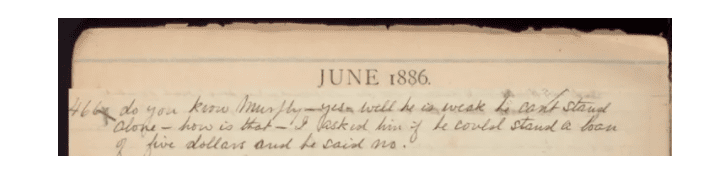 JUNE 1886.
466 do you know Murphy – yes well he is weak he cant stand
alone – how is that – I asked him if he could stand a loan
of five dollars and he said no.